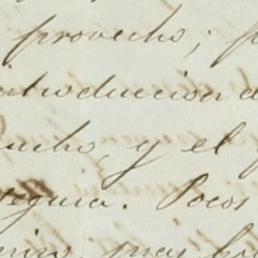 provecho; p
introduccion d
ucho, y el
segura. Pocos